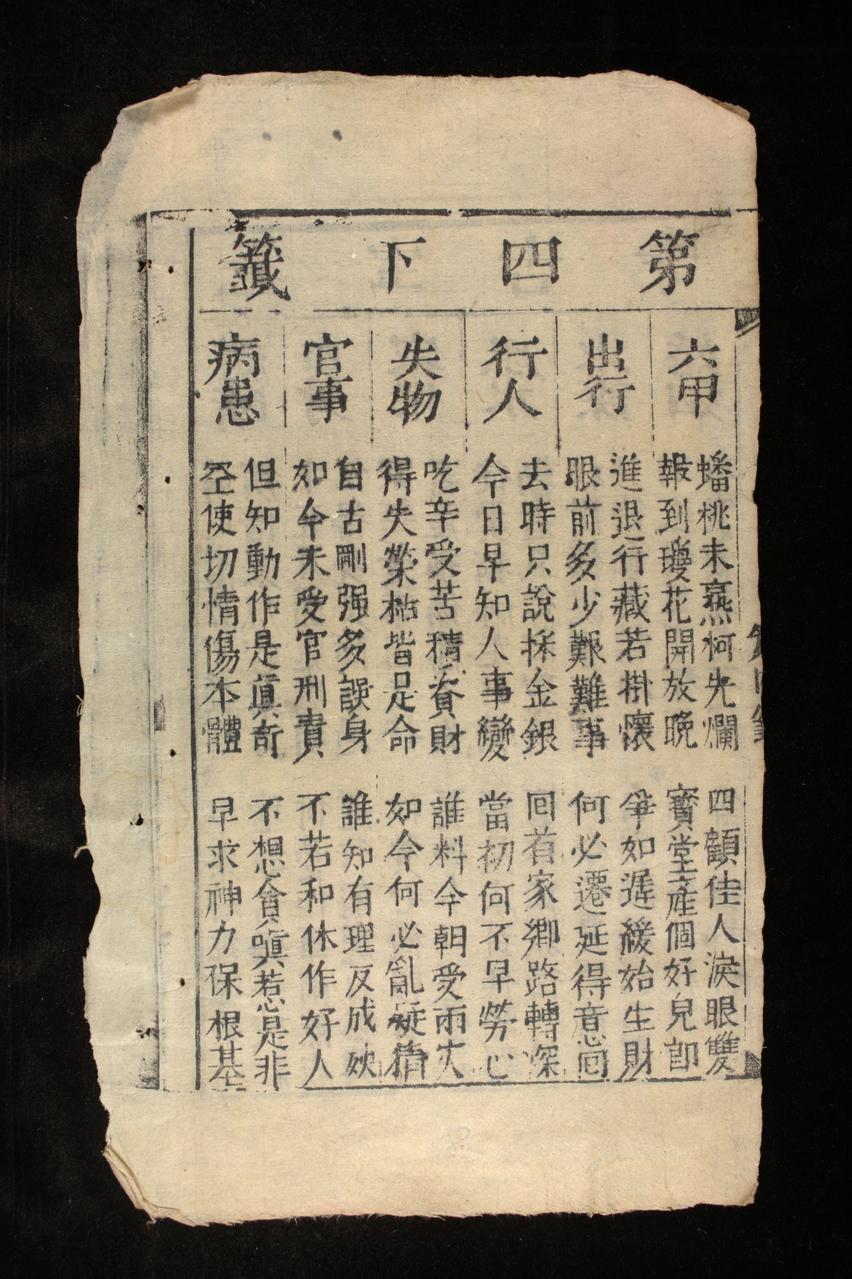 第四下籤
六甲
蟠桃未熟柯先爛
四顧佳人淚眼雙
報到瓊花開放晚
寳堂產個好兒郎
出行
進退行藏若掛懷
爭如遲緩始生財
眼前多少艱難事
何必遷延得意囘
行人
去時只說採金銀
囘首家鄉路轉深
今日早知人事變
當初何不早勞心
失物
吃辛受苦積資財
誰料今朝受雨灾
得失榮枯皆是命
如今何必亂疑猜
官事
自古剛强多誤身
誰知有理反成
如今未受官刑責
不若和休作好人
病患
但知動作是眞奇
不想貪嗔惹是非
空使切情傷本體
早求神力保根基